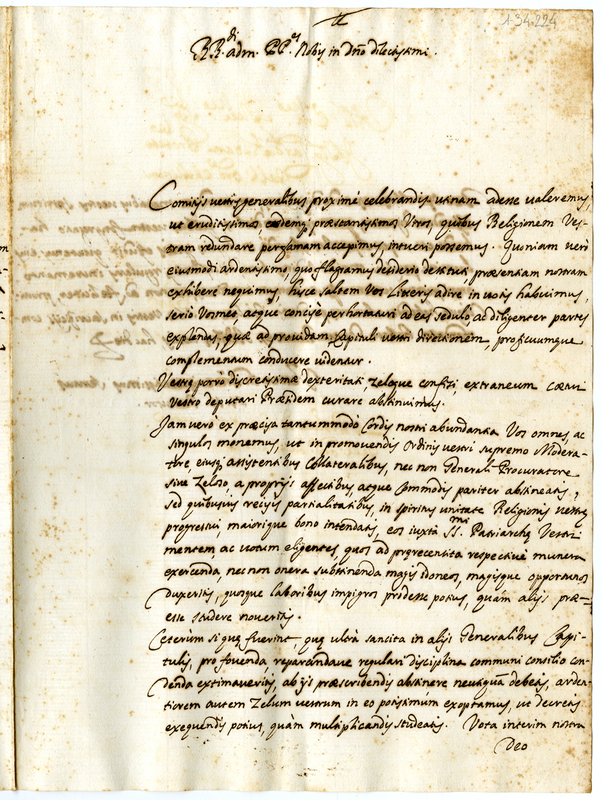 1.34.224
RR.di adm. PP.es Nobis in Dño dilectissimi.
Comitijs vestris generalibus proximè celebrandis utinam adesse valeremus,
ut eruditissimos, eosdemq; præstantissimos Viros, quibus Religionem Ves-
tram redundare per famam accepimus, intueri possemus. Quoniam verò
eiusmodi ardentissimo, quo flagramus desiderio destituti præsentiam nostram
exhibere nequimus, hisce saltem Vos Litteris adire in votis habuimus,
serio Vosmet, atque concisè perhortaturi ad eas sedulò, ac diligenter partes
explendas, quæ ad providam Capituli vestri directionem, proficuumque
complementum conducere videntur.
Vestræ porrò discretissimæ dexteritati, zeloque confisi, extraneum cœtui
Vestro deputari Præsidem curare abstinuimus.
Jam verò ex præcisa tantummodò Cordis nostri abundantia Vos omnes, ac
singulos monemus, ut in promovendis Ordinis vestri supremo Modera-
tore, eiusq; assistentibus Collateralibus, nec non Generali Procuratore
sive Zeloso, a proprijs affectibus, atque Commodis pariter abstineatis,
sed quibusvis reiectis partialitatibus, in spiritus unitate Religionis vestræ
progressui, maiorique bono intendatis, eos iuxtà SS.mi Patriarchæ Vestri
mentem ac votum eligentes, quos ad prærecensita respectivè munera
exercenda, nec non onera substinenda magis idoneos, magisque opportunos
duxeritis, quosque laboribus impigros prodesse potius, quàm alijs præ-
esse studere noveritis.
Ceterum si quæ fuerint quæ ultrà sancita in alijs Generalibus Capi-
tulis, pro fovenda, reparandave regulari disciplina communi consilio con-
denda extimaveritis, ab ijs præscribendis abstinere neutiquã debeatis, arden-
tiorem autem Zelum vestrum in eo potissimùm exoptamus, ut decretis
exequendis potius, quàm multiplicandis studeatis. Vota interim nostra
Deo